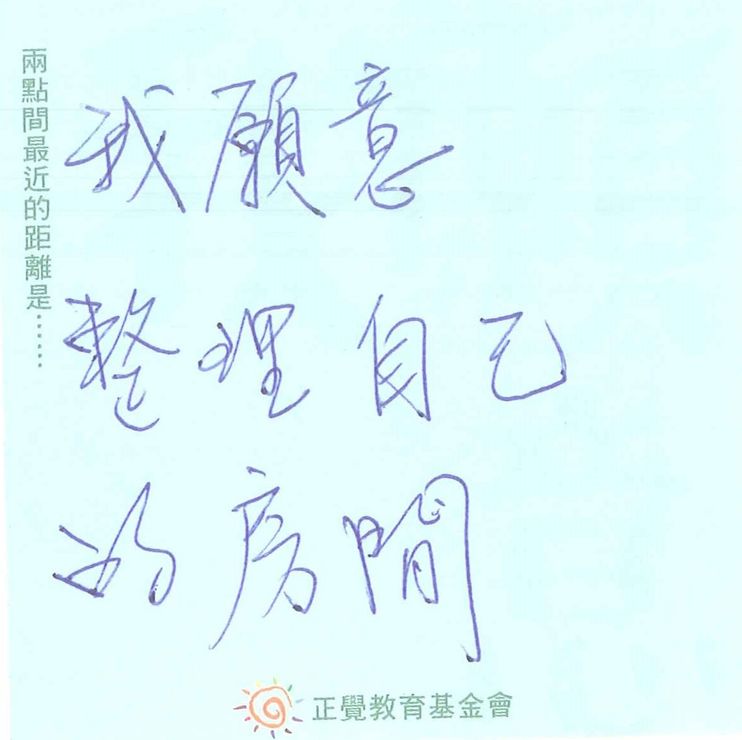 兩點間最近的距離是……
我願意
整理自己
的房間
正覺教育基金會